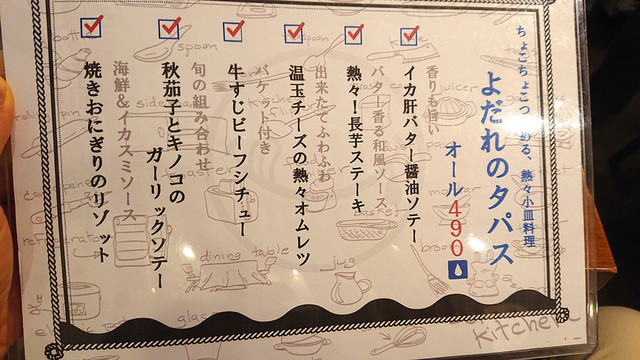 ちょこちょこつまめる、熱々小皿料理
よだれのタパス
オール490
香りも旨い
イカ肝バター醤油ソテー
バター香る和風ソース
熱々！長芋ステーキ
出来たてふわふわ
温玉チーズの熱々オムレツ
バケット付き
牛すじビーフシチュー
旬の組み合わせ
秋茄子とキノコの
ガーリックソテー
海鮮&イカスミソース
焼きおにぎりのリゾット
spoon
dining table
jug
glass
Kitchen